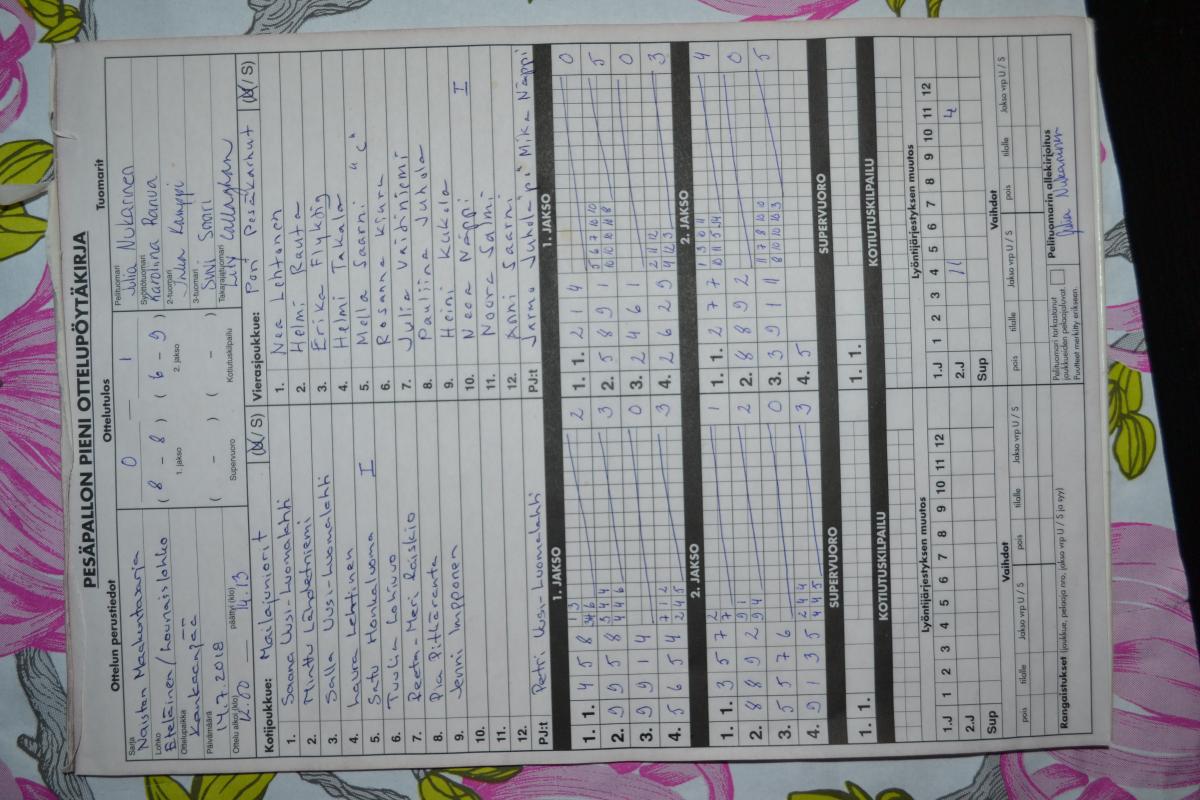 PESÄPALLON PIENI OTTELUPÖYTÄKIRJA
Ottelun perustiedot
Sarja
Naisten Maakuntasarja
Lohko
Eteläinen / Lounaislohko
Ottelupaikka
Kankaanpää
Päivämäärä
14.7.2018
Ottelu alkoi (klo) päättyi (klo)
12.00 14.13
Ottelutulos
0 1
( 8 - 8 ) ( 6 - 9 )
1. jakso 2. jakso
( - ) ( - )
Supervuoro Kotiutuskilpailu
Tuomarit
Pelituomari
Julia Nukarinen
Syöttötuomari
Karolina Ranua
2-tuomari
Kamppi
3-tuomari
Sini Soori
Takarajatuomari
Lily Callaghan
Kotijoukkue: Mailajuniorit (U / S)
1. Saana Uusi-Luomalahti
2. Minttu Lähdetniemi
3. Salla Uusi-Luomalahti
4. Laura Lehtinen
5. Satu Honkaluoma I
6. Tuulia Lohivuo
7. Reeta-Meri Raiskio
8. Pia Pitkäranta
9. Jenni Impponen
10.
11.
12.
PJ:t Petri Uusi-Luomalahti
Vierasjoukkue: Pori Pesäkarhut (U / S)
1. Nea Lehtonen
2. Helmi Rauta
3. Erika Flyktig
4. Helmi Takala
5. Mella Saarni "c"
6. Rosanna Kiura
7. Julia Vaidiniemi
8. Pauliina Juhola
9. Heini Kukola
10. Neea Näppi I
11. Noora Salmi
12. Anni Saarni
PJ:t Jarmo Juhola, Mika Näppi
1. JAKSO
1. 1. 4 5 8 2
2. 9 9 5 8 3
3. 9 9 1 4 0
4. 5 6 5 4 3
2. JAKSO
1. 1. 3 5 7 1
2. 8 8 9 2 2
3. 5 5 7 6 0
4. 9 1 3 5 3
SUPERVUORO
1. 1.
KOTIUTUSKILPAILU
1. JAKSO
1. 1. 2 1 4 0
2. 5 8 9 1 5
3. 2 4 6 1 0
4. 2 6 2 9 3
2. JAKSO
1. 1. 2 7 7 4
2. 8 8 9 2 0
3. 3 9 1 11 5
4. 5
SUPERVUORO
1. 1.
KOTIUTUSKILPAILU
Lyöntijärjestyksen muutos
1.J 1 2 3 4 5 6 7 8 9 10 11 12
2.J
Sup
Vaihdot
pois tilalle Jakso vrp U / S pois tilalle Jakso vrp U / S
Lyöntijärjestyksen muutos
1.J 1 2 3 4 5 6 7 8 9 10 11 12
2.J 11 4
Sup
Vaihdot
pois tilalle Jakso vrp U / S pois tilalle Jakso vrp U / S
Rangaistukset (joukkue, pelaaja nro, jakso vrp U / S ja syy)
Pelituomari tarkastanut
joukkueiden pelaajaluvat.
Puutteet merkitty erikseen.
Pelituomarin allekirjoitus
Julia Nukarinen